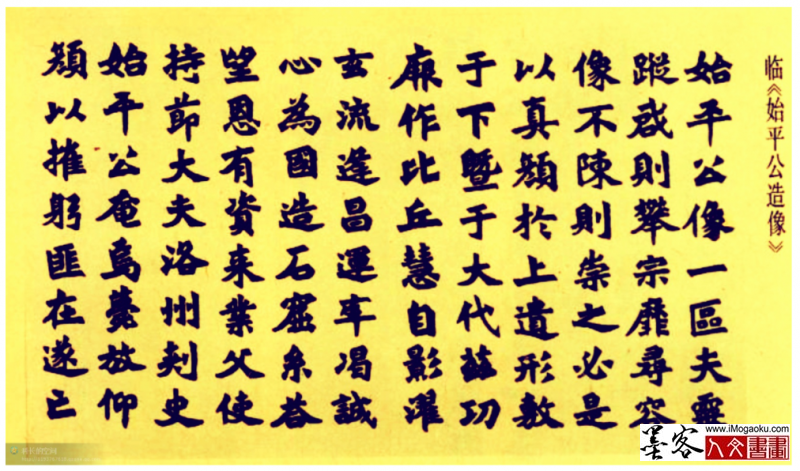 临《始平公造像》
始平公像一區夫靈
蹤啟則攀宗靡尋容
像不陳則崇之必是
以真顏於上遺形敷
于下暨于大代茲功
厥作比丘慧自影濯
玄流逢昌運率竭誠
心為國造石窟系答
望恩有資來業父使
持節大夫洛州刺史
始平公奄焉薨放仰
顏以摧躬匪在遂亡
www.iMogaoku.com
墨客人文書畫